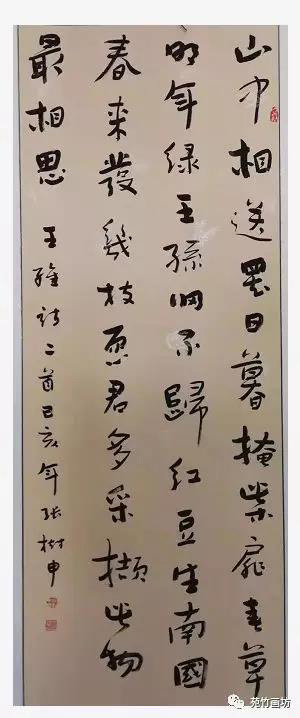 山中相送罷日暮掩柴扉春草
明年绿王孫歸不歸红豆生南國
春来發幾枝愿君多采撷此物
最相思 王维诗二首己亥年张树申
苑竹画坊